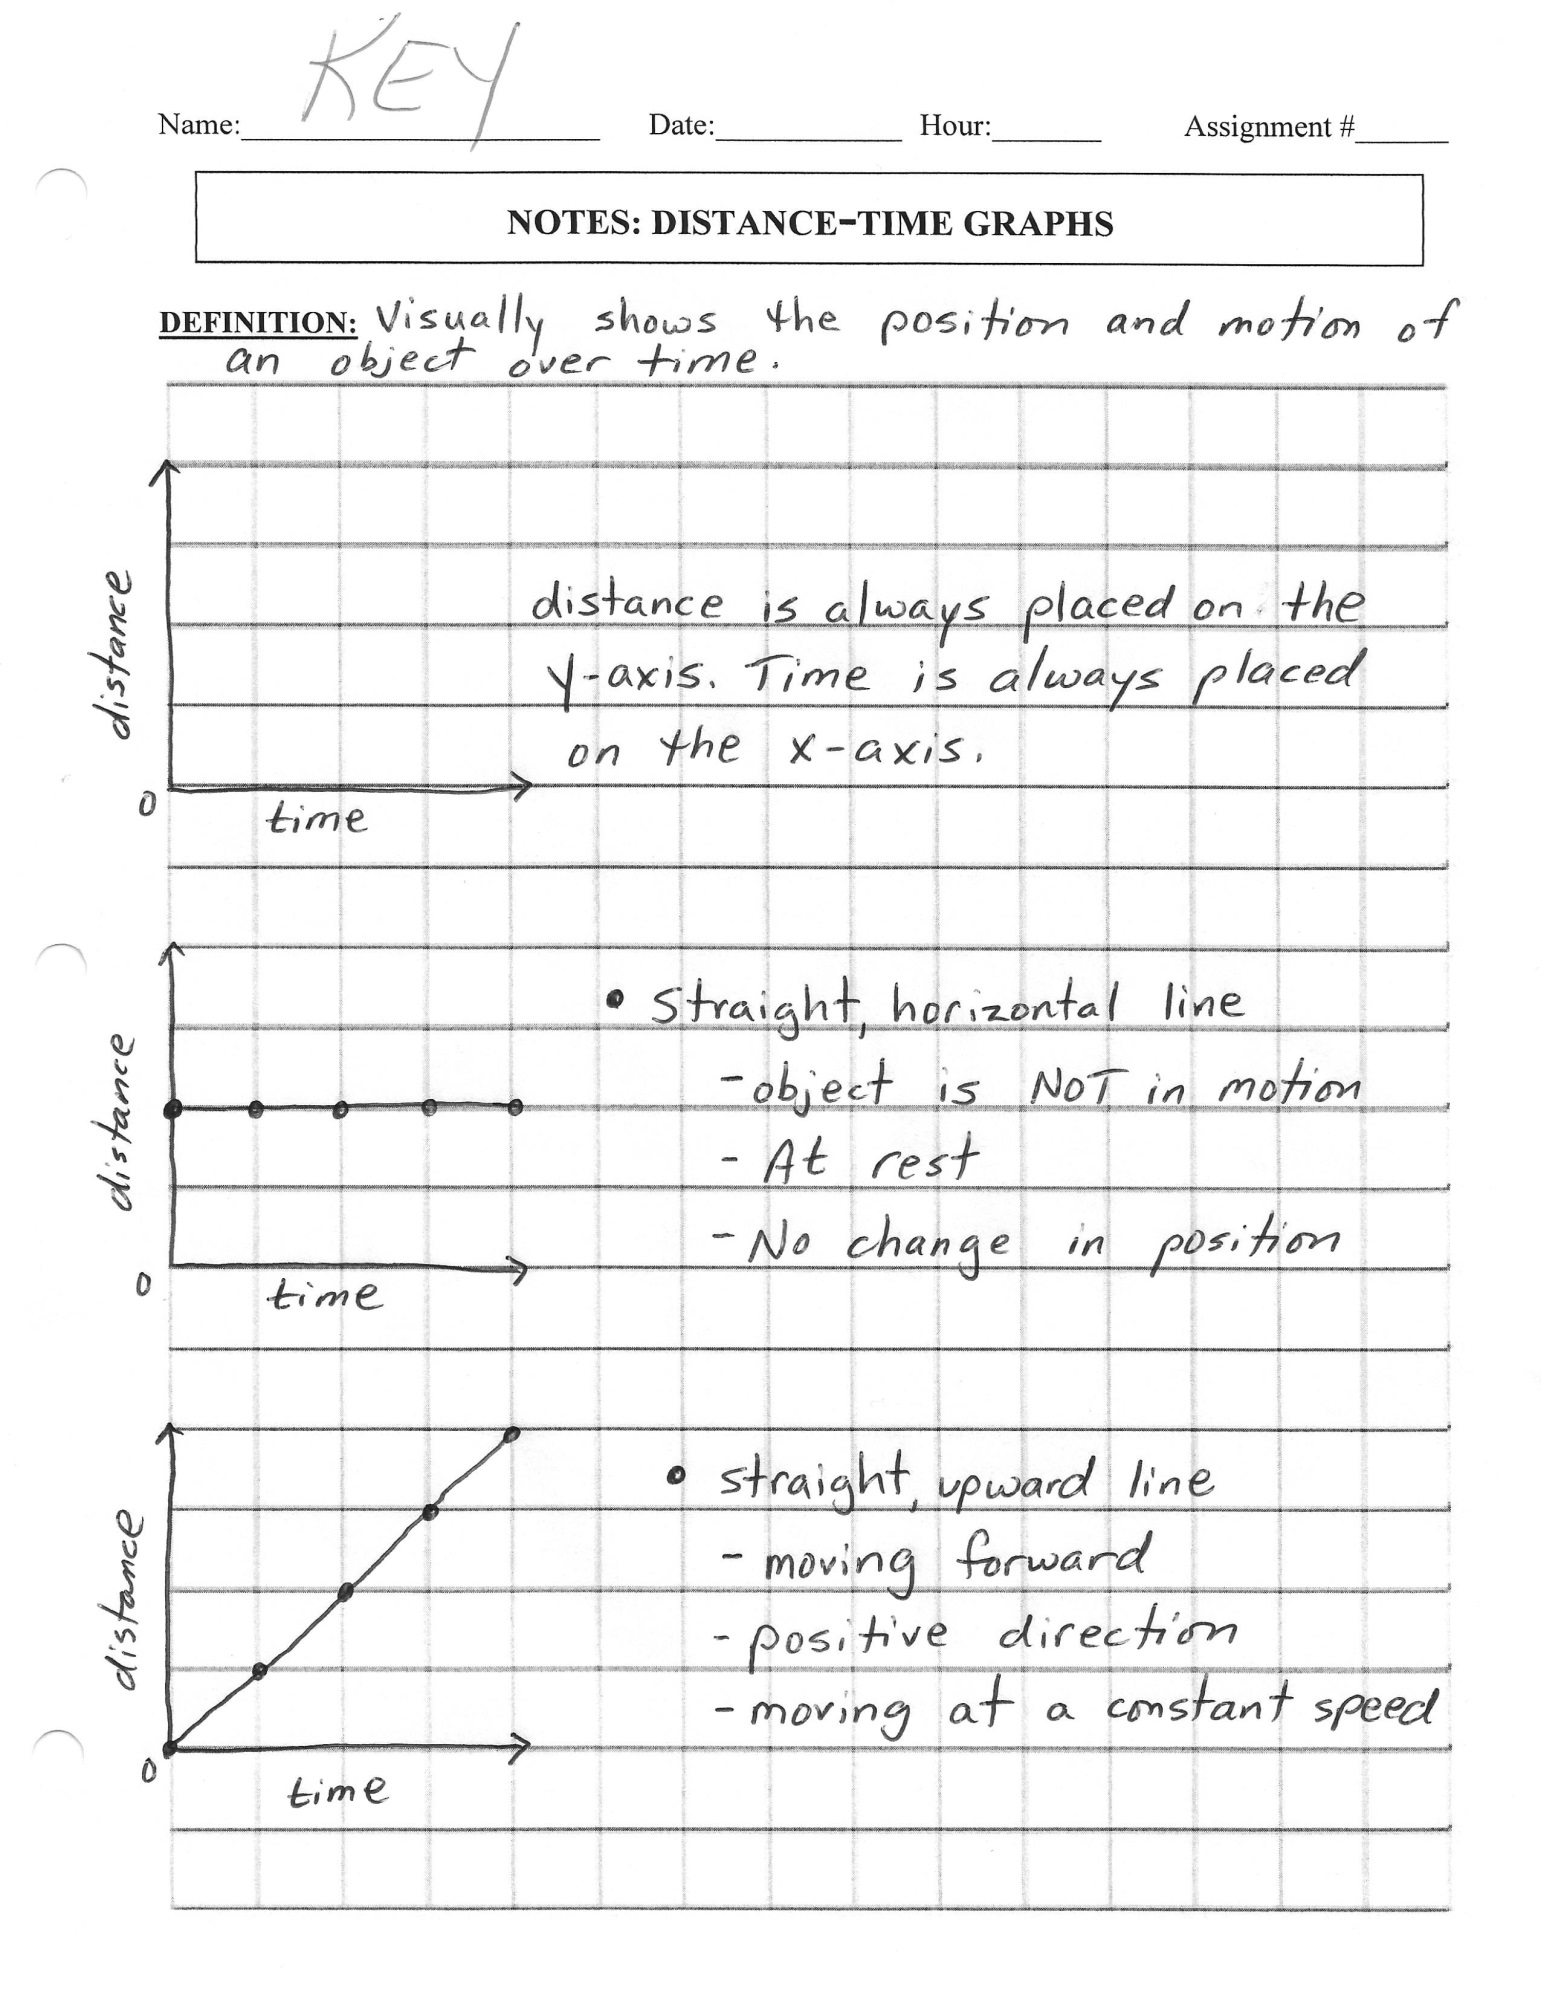 KEY
Name: Date: Hour: Assignment #
NOTES: DISTANCE-TIME GRAPHS
DEFINITION: Visually shows the position and motion of
an object over time.
distance
distance is always placed on the
y-axis. Time is always placed
on the x-axis.
0
time
distance
• Straight, horizontal line
-object is NOT in motion
- At rest
- No change in position
0
time
distance
• straight, upward line
- moving forward
- positive direction
- moving at a constant speed
0
time